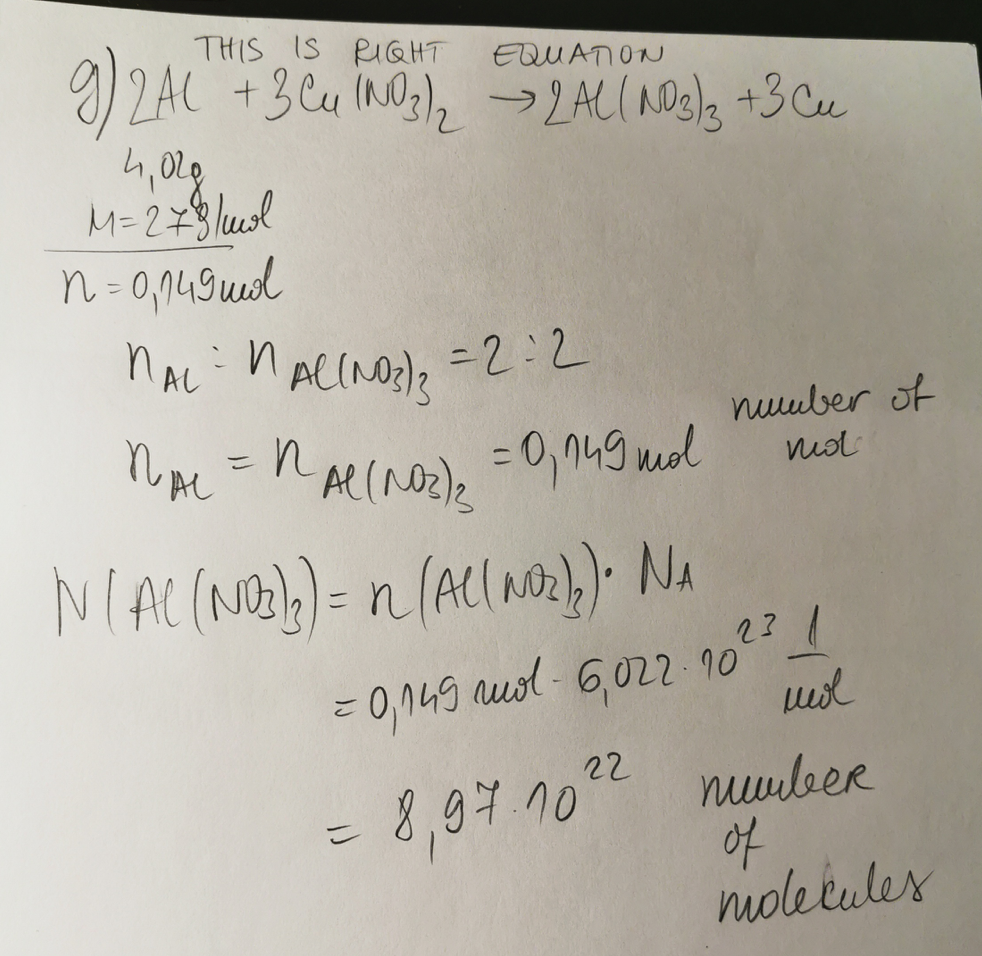 THIS IS RIGHT EQUATION
g) 2Al + 3Cu(NO3)2 → 2Al(NO3)3 + 3Cu
4,02g
M=27g/mol
n = 0,149mol
nAl : nAl(NO3)3 = 2:2
nAl = nAl(NO3)3 = 0,149mol number of
mol
N(Al(NO3)3) = n(Al(NO3)3)· NA
= 0,149 mol · 6,022·10^23 1/mol
= 8,97·10^22 number
of
molecules